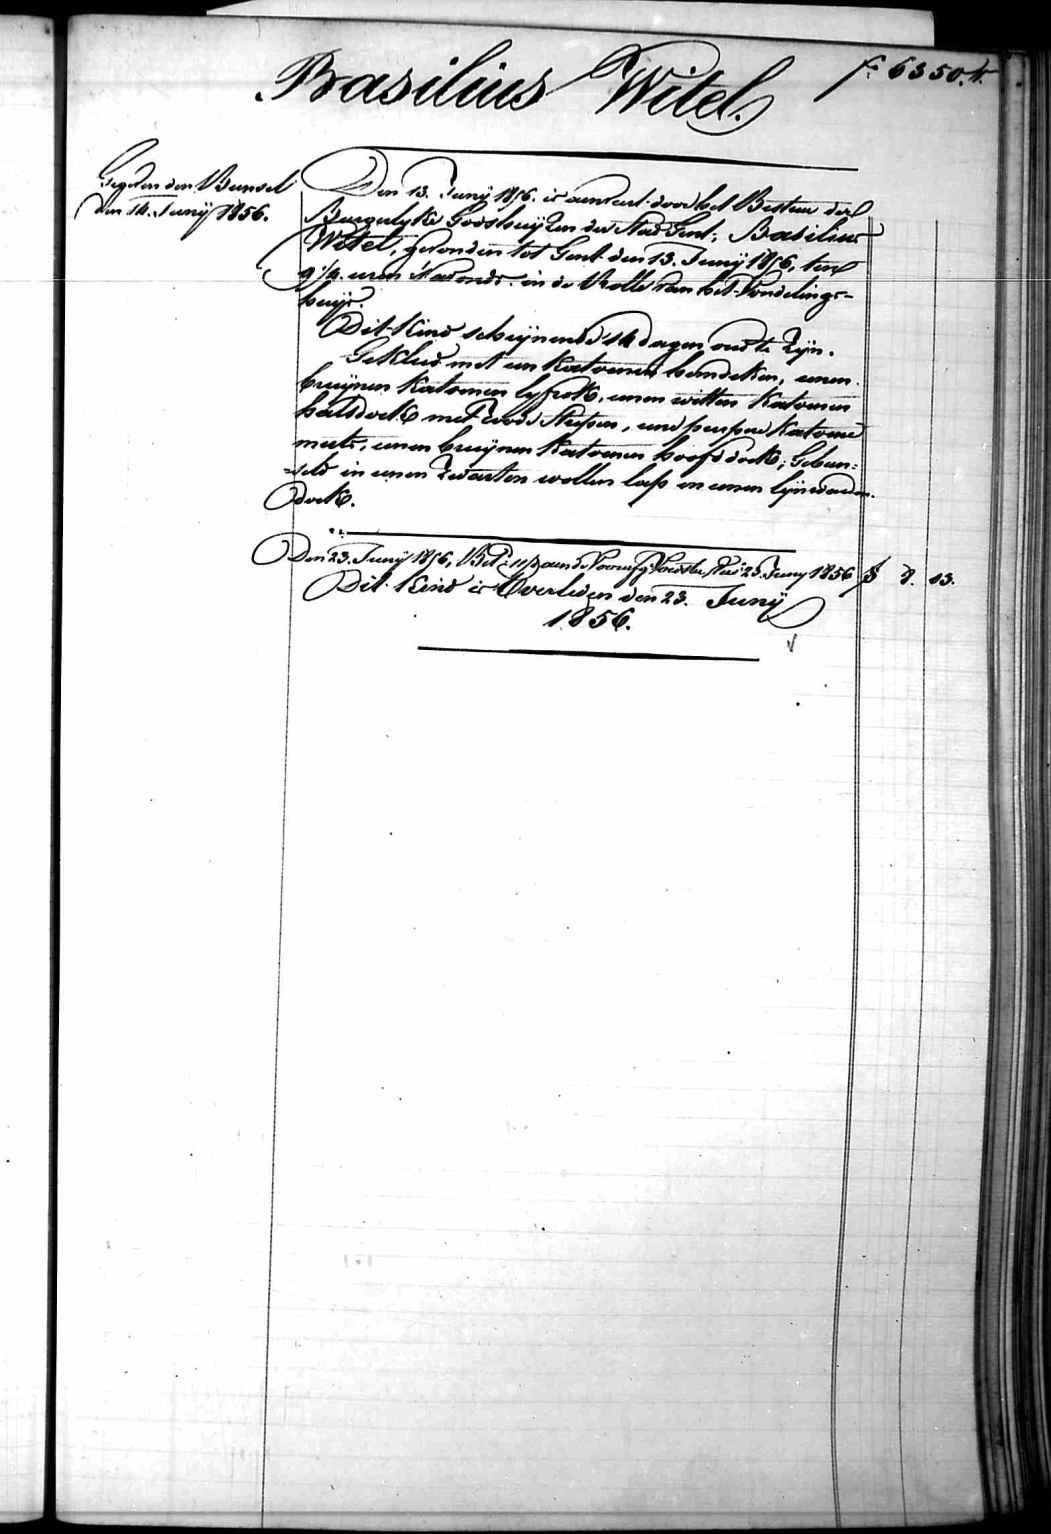 Basilius Witel.
f.º 6350.
Gegeven den Bunsel
den 14. Junij 1856.
Den 13. Junij 1856. is aenveert door het Bestuer der
Burgerlyke Godshuijzen der Stad Gent; Basilius
Witel, gevonden tot Gent den 13. Junij 1856, ten
9 1/2 uren 's avonds. in de Rolle van het Vondelings-
huijs.
Dit Kind schijnende 14 dagen oud te zijn.
Gekleed met een Katoenen hemdeken, eenen
bruijnen Katoenen lyfrok, eenen witten Katoenen
halsdoek met roode strepen, eene purpere Katoene
muts, eenen bruijnen Katoenen hoofddoek; Gebun-
seld in eenen zwarten wollen lap en eenen lijnwaden
doek.
Den 23. Junij 1856, Bet: aende Voedster 23 Juny 1856 8. 13.
Dit Kind is Overleden den 23. Junij
1856.